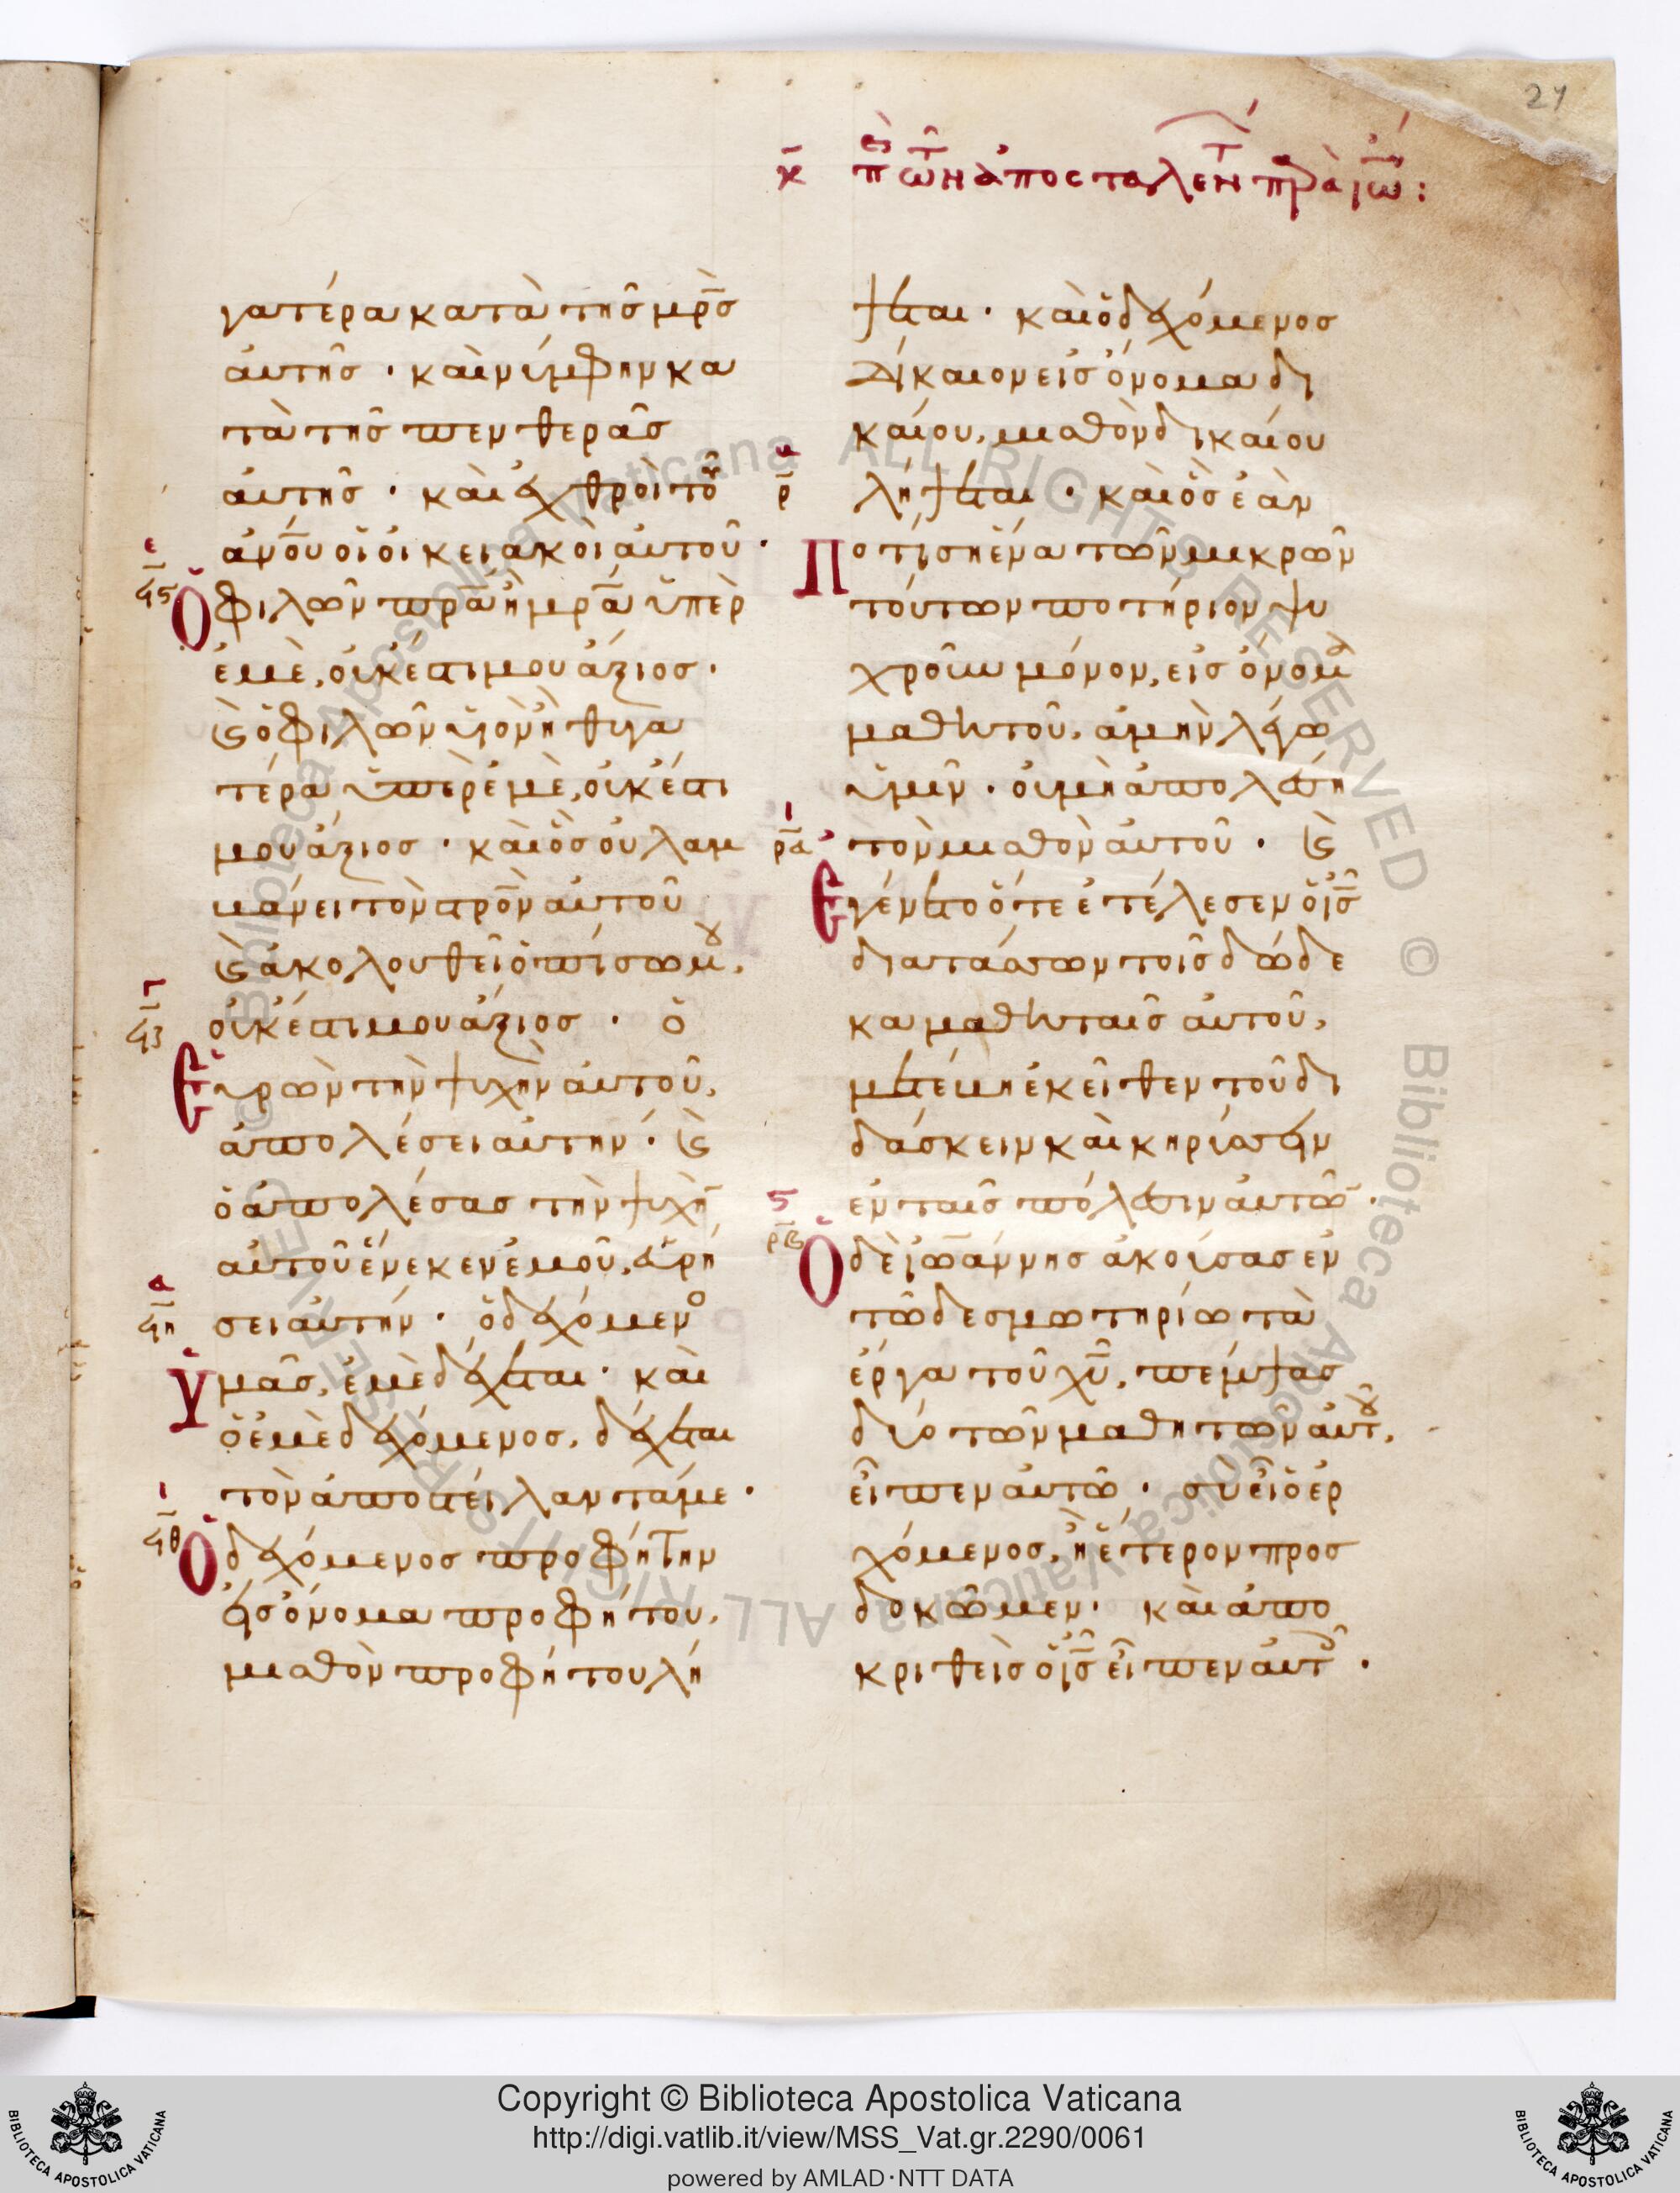 27
κ̄ πὲ τῶν ἀποσταλέντ πρὰ ἰῶ :
γατέρα κατὰ τῆς μρ̅ς
αὐτῆς · καὶ νύμφην κα
τὰ τῆς πενθερᾶς
αὐτῆς · καὶ ἐχθροὶ τοῦ
ἀνο̅υ οἱ οἰκειακοὶ αὐτοῦ ·
Ὁ φιλῶν πρ̅α ἢ μρ̅α ὑπὲρ
ἐμὲ, οὐκέστι μου ἄξιος ·
ϗ ὁ φιλῶν υἱὸν ἢ θυγα
τέρα ὑπὲρ ἐμὲ, οὐκέστι
μου ἄξιος · καὶ ὃς οὐ λαμ
βάνει τὸν στρο̅ν αὐτοῦ
ϗ ἀκολουθεῖ ὀπίσω μου,
οὐκέστι μου ἄξιος · ὁ
Εὑρὼν τὴν ψυχὴν αὐτοῦ,
ἀπολέσει αὐτην · ϗ
ὁ ἀπολέσας τὴν ψυχη̅
αὐτοῦ ἕνεκεν ἐμοῦ, εὑρή
σει αὐτήν · ὁ δεχόμενο
Ὑμᾶς, ἐμὲ δέχεται · καὶ
ὁ ἐμὲ δεχόμενος, δέχεται
τὸν ἀποστείλαντά με ·
Ὁ δεχόμενος προφήτην
εἰς ὄνομα προφήτου,
μισθὸν προφήτου λή
ψεται · καὶ ὁ δεχόμενος
δίκαιον εἰς ὄνομα δι
καίου, μισθὸν δικαίου
λήψεται · καὶ ὃς ἐὰν
Ποτίση ἕνα τῶν μικρῶν
τούτων ποτήριον ψυ
χροῦ μόνον, εἰς ὄνομα
μαθητοῦ, ἀμὴν λέγω
ὑμῖν · οὐ μὴ ἀπολέση
τὸν μισθὸν αὐτοῦ · ϗ
Ἐγένετο ὅτε ἐτέλεσεν ὁ ἰ̅ς
διατάσσων τοῖς δώδε
κα μαθηταῖς αὐτοῦ,
μετέβη ἐκεῖθεν τοῦ δι
δάσκειν καὶ κηρύσσειν
ἐν ταῖς πόλεσιν αὐτῶ̅ ·
Ὁ δὲ ἰωάννης ἀκούσας ἐν
τῶ δεσμωτηρίω τὰ
ἔργα τοῦ χ̅υ, πέμψας
δύο τῶν μαθητῶν αὐτου,
εἶπεν αὐτῶ · σὺ εἶ ὁ ἐρ
χόμενος, ἢ ἕτερον προς
δοκῶμεν · καὶ ἀπο
κριθεὶς ὁ ἰ̅ς εἶπεν αὐτ ·
ε
ϟϛ
γ
ϟζ
ϟη
ι
ϟθ
ρ
ι
ρα
ε
ρβ
Copyright © Biblioteca Apostolica Vaticana
http://digi.vatlib.it/view/MSS_Vat.gr.2290/0061
powered by AMLAD·NTT DATA
BIBLIOTECA APOSTOLICA VATICANA
BIBLIOTECA APOSTOLICA VATICANA
© Biblioteca Apostolica Vaticana ALL RIGHTS RESERVED